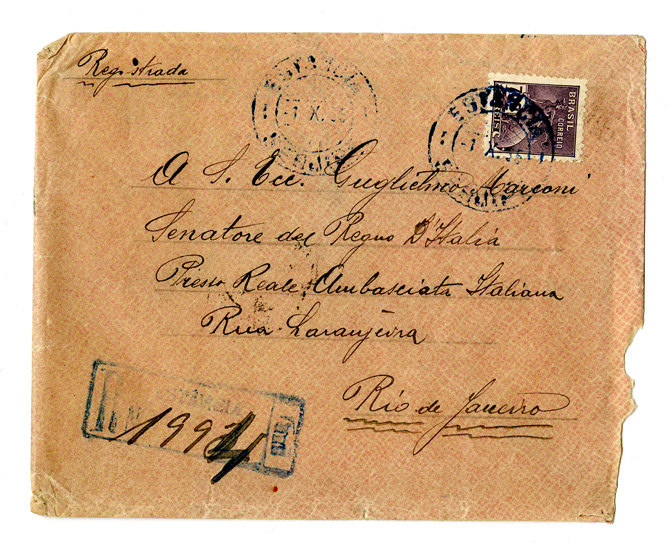 Registrada
ESTANCIA
BRASIL
CORREIO
ESTANCIA
A S. Ecc. Guglielmo Marconi
Senatore del Regno D'Italia
Presso Reale Ambasciata Italiana
Rua Laranjeira
Rio de Janeiro